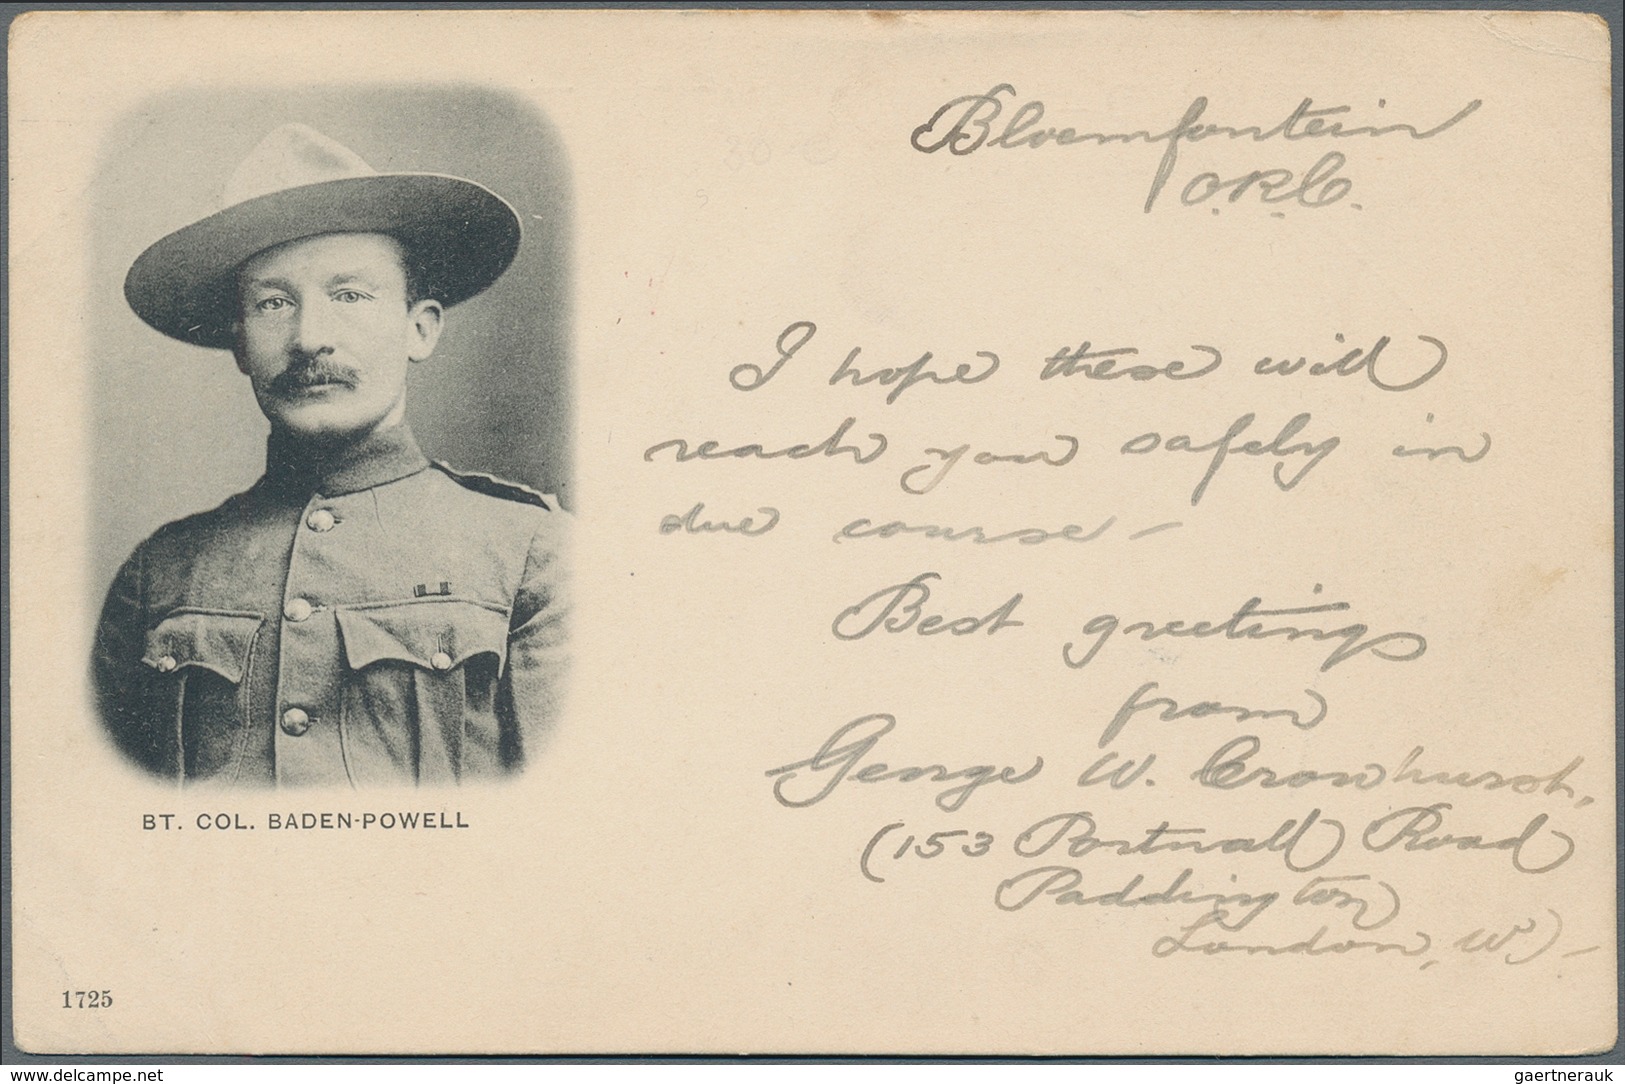 Bloemfontein
O.R.C.
I hope these will
reach you safely in
due course —
Best greetings
from
George W. Cronhurst,
(153 Portnall Road
Paddington
London, W.) —
BT. COL. BADEN-POWELL
1725
www.delcampe.net
gaertnerauk